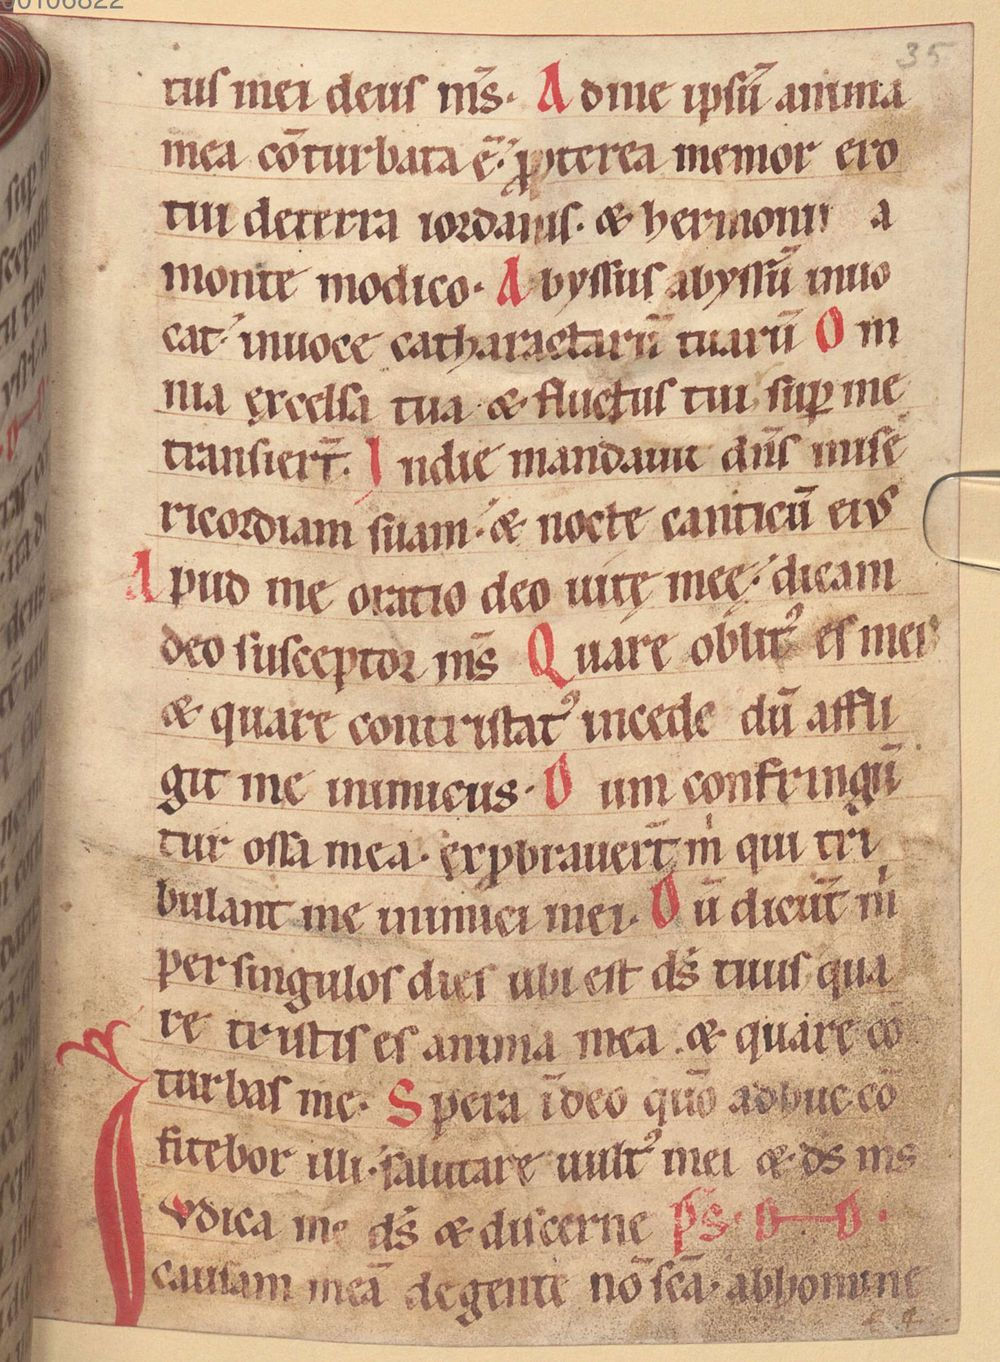 00106822
35
tus mei deus ms̄. A dme ipsū anima
mea cōturbata ē. ꝓpterea memor ero
tui deterra iordanis. & hermonii a
monte modico. A byssus abyssū inuo
cat. inuoce catharactarū tuarū O m
nia excelsa tua & fluctus tui sup me
transierт̄. I ndie mandauit dn̄s mise
ricordiam suam. & nocte canticū eius
A pud me oratio deo uitę meę. dicam
deo susceptor ms̄ Q uare oblit᷒ es mei
& quare contristat᷒ incede dū affli
git me inimicus. D um confringū
tur ossa mea. exꝓbrauerт̄ m̍ qui tri
bulant me inimici mei. D ū dicūt m̍
per singulos dies ubi est ds̄ tuus qua
re tristis es anima mea & quare cō
turbas me. S pera īdeo qūo adhuc cō
fitebor illi. salutare uult᷒ mei & ds̄ ms
I vdica me ds̄ & discerne ps. D D.
causam meā de gente nō scā. abhomine